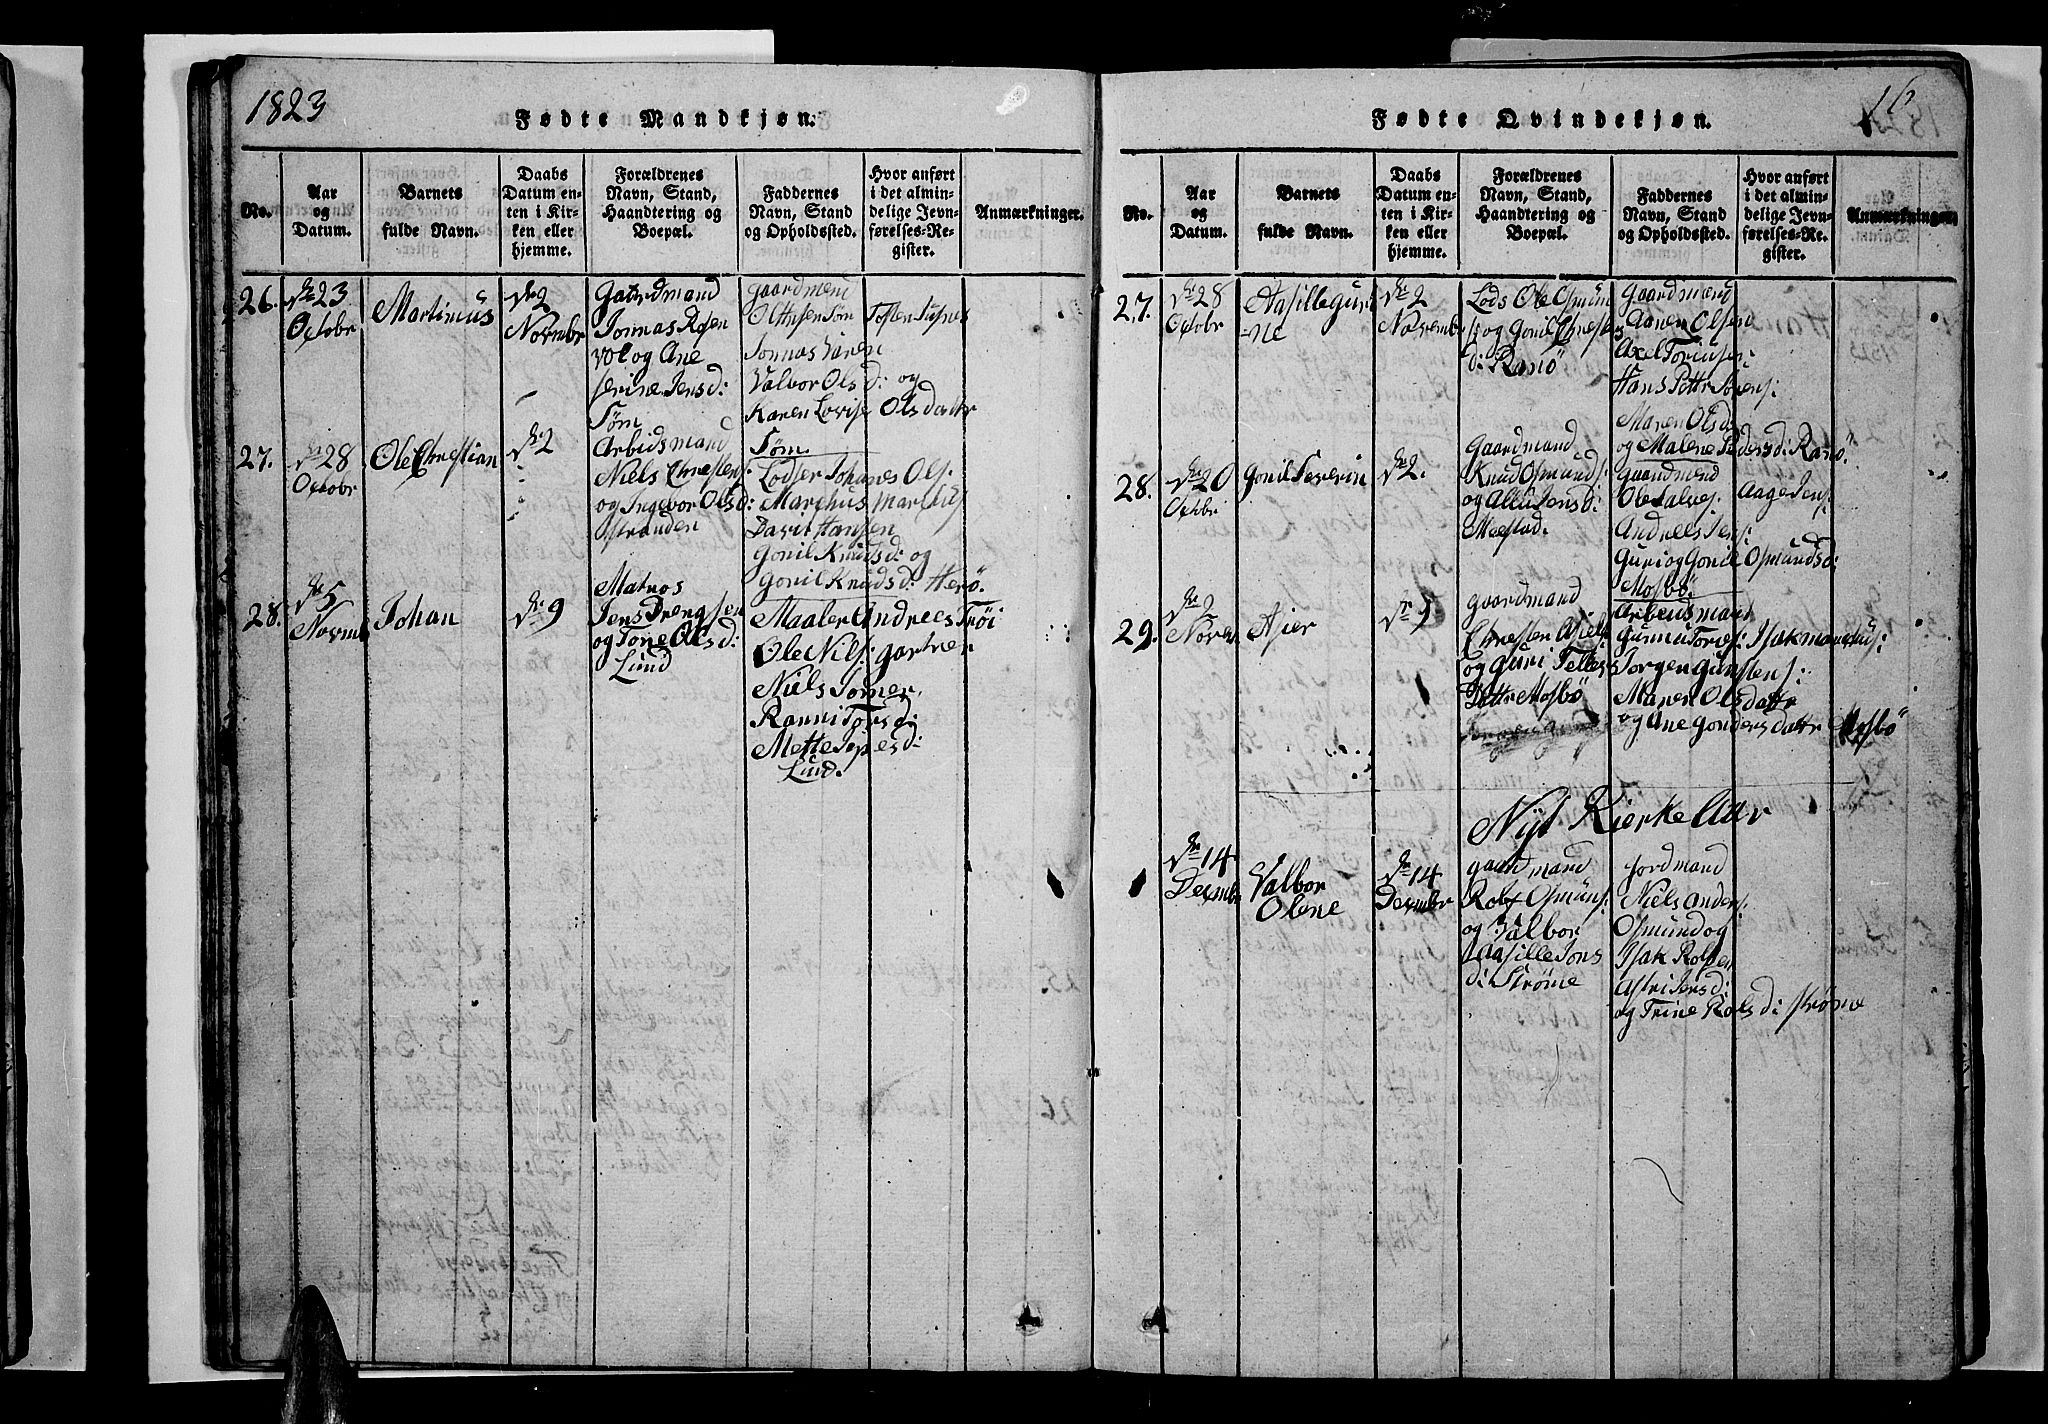 1823
Fødte Mandkjøn.
No.
Aar
og
Datum.
Barnets
fulde Navn.
Daabs
Datum en-
ten i Kir-
ken eller
hjemme.
Forældrenes
Navn, Stand,
Haandtering og
Boepæl.
Faddernes
Navn, Stand
og Opholdssted.
Hvor anført
i det almin-
delige Jevn-
førelses-Re-
gister.
Anmærkninger.
26.
23
Octobr
Martinus
2
Novmbr
Gaardmand
Jonnas
og Ane
Jensd:
Tøm
Gaardmend
Jonnas
Valbor Olsd: og
Karen Lovise Olsdattr
Tøm
27.
28
Octobr
Ole Christian
2
Arbidsmand
Niels Christens:
og Ingebor Olsd:
Stranden
Lodser Johanes Ols:
Marchus
Davit Hansen
Gonil Knudsd: og
Gonil Knudsd: Herø
28.
5
Novmb
Johan
9
Matros
Jens Drengsen
og Tone Olsd:
Lund
Maaler Andreas Trøi
Ole Nils: gartner
Niels
Ranni Torsd:
Mette
Lund.
Fødte Qvindekjøn.
16
No.
Aar
og
Datum.
Barnets
fulde Navn.
Daabs
Datum en-
ten i Kir-
ken eller
hjemme.
Forældrenes
Navn, Stand,
Haandtering og
Boepæl.
Faddernes
Navn, Stand
og Opholdssted.
Hvor anført
i det almin-
delige Jevn-
førelses-Re-
gister.
Anmærkninger.
27.
28
Octobr
Aasille Guri
=ne
2
Novembr
Lods Ole Osmun
s: og Gonil Christens
d: Ranø
Gaardmænd
Aanen Olsen
Axel
Hans Pettr
Maren Olsd:
og Malene Pedersd: Ranø
28.
20
Octbr
Gonil Severin
2.
Gaardmand
Knud Osmunds:
og Jensd:
Gaardmend
Ole Salves: Aage Jens:
Andreas Jens:
Guri og Gonil Osmundsd:
Mosbø
29.
2
Novem
Asier
9
Gaardmand
Christen
og Guri Telles
Dattr Mosbø
Arbeidsmand
Gunnu Isak
Jorgen Gunstens:
Maren Olsdattr
og Ane Gondersdattr Mosbø
Nyt Kierke Aar
14
Decembr
Valbor
Olene
14
Decembr
Gaardmand
Rolf Osmuns:
og Valbor
Aasille Jons
d: Strøme
Jordmand
Niels Anders:
Osmund og
Isak Rolfsen
Astri Jensd:
og Trine Rolsd: Strøme